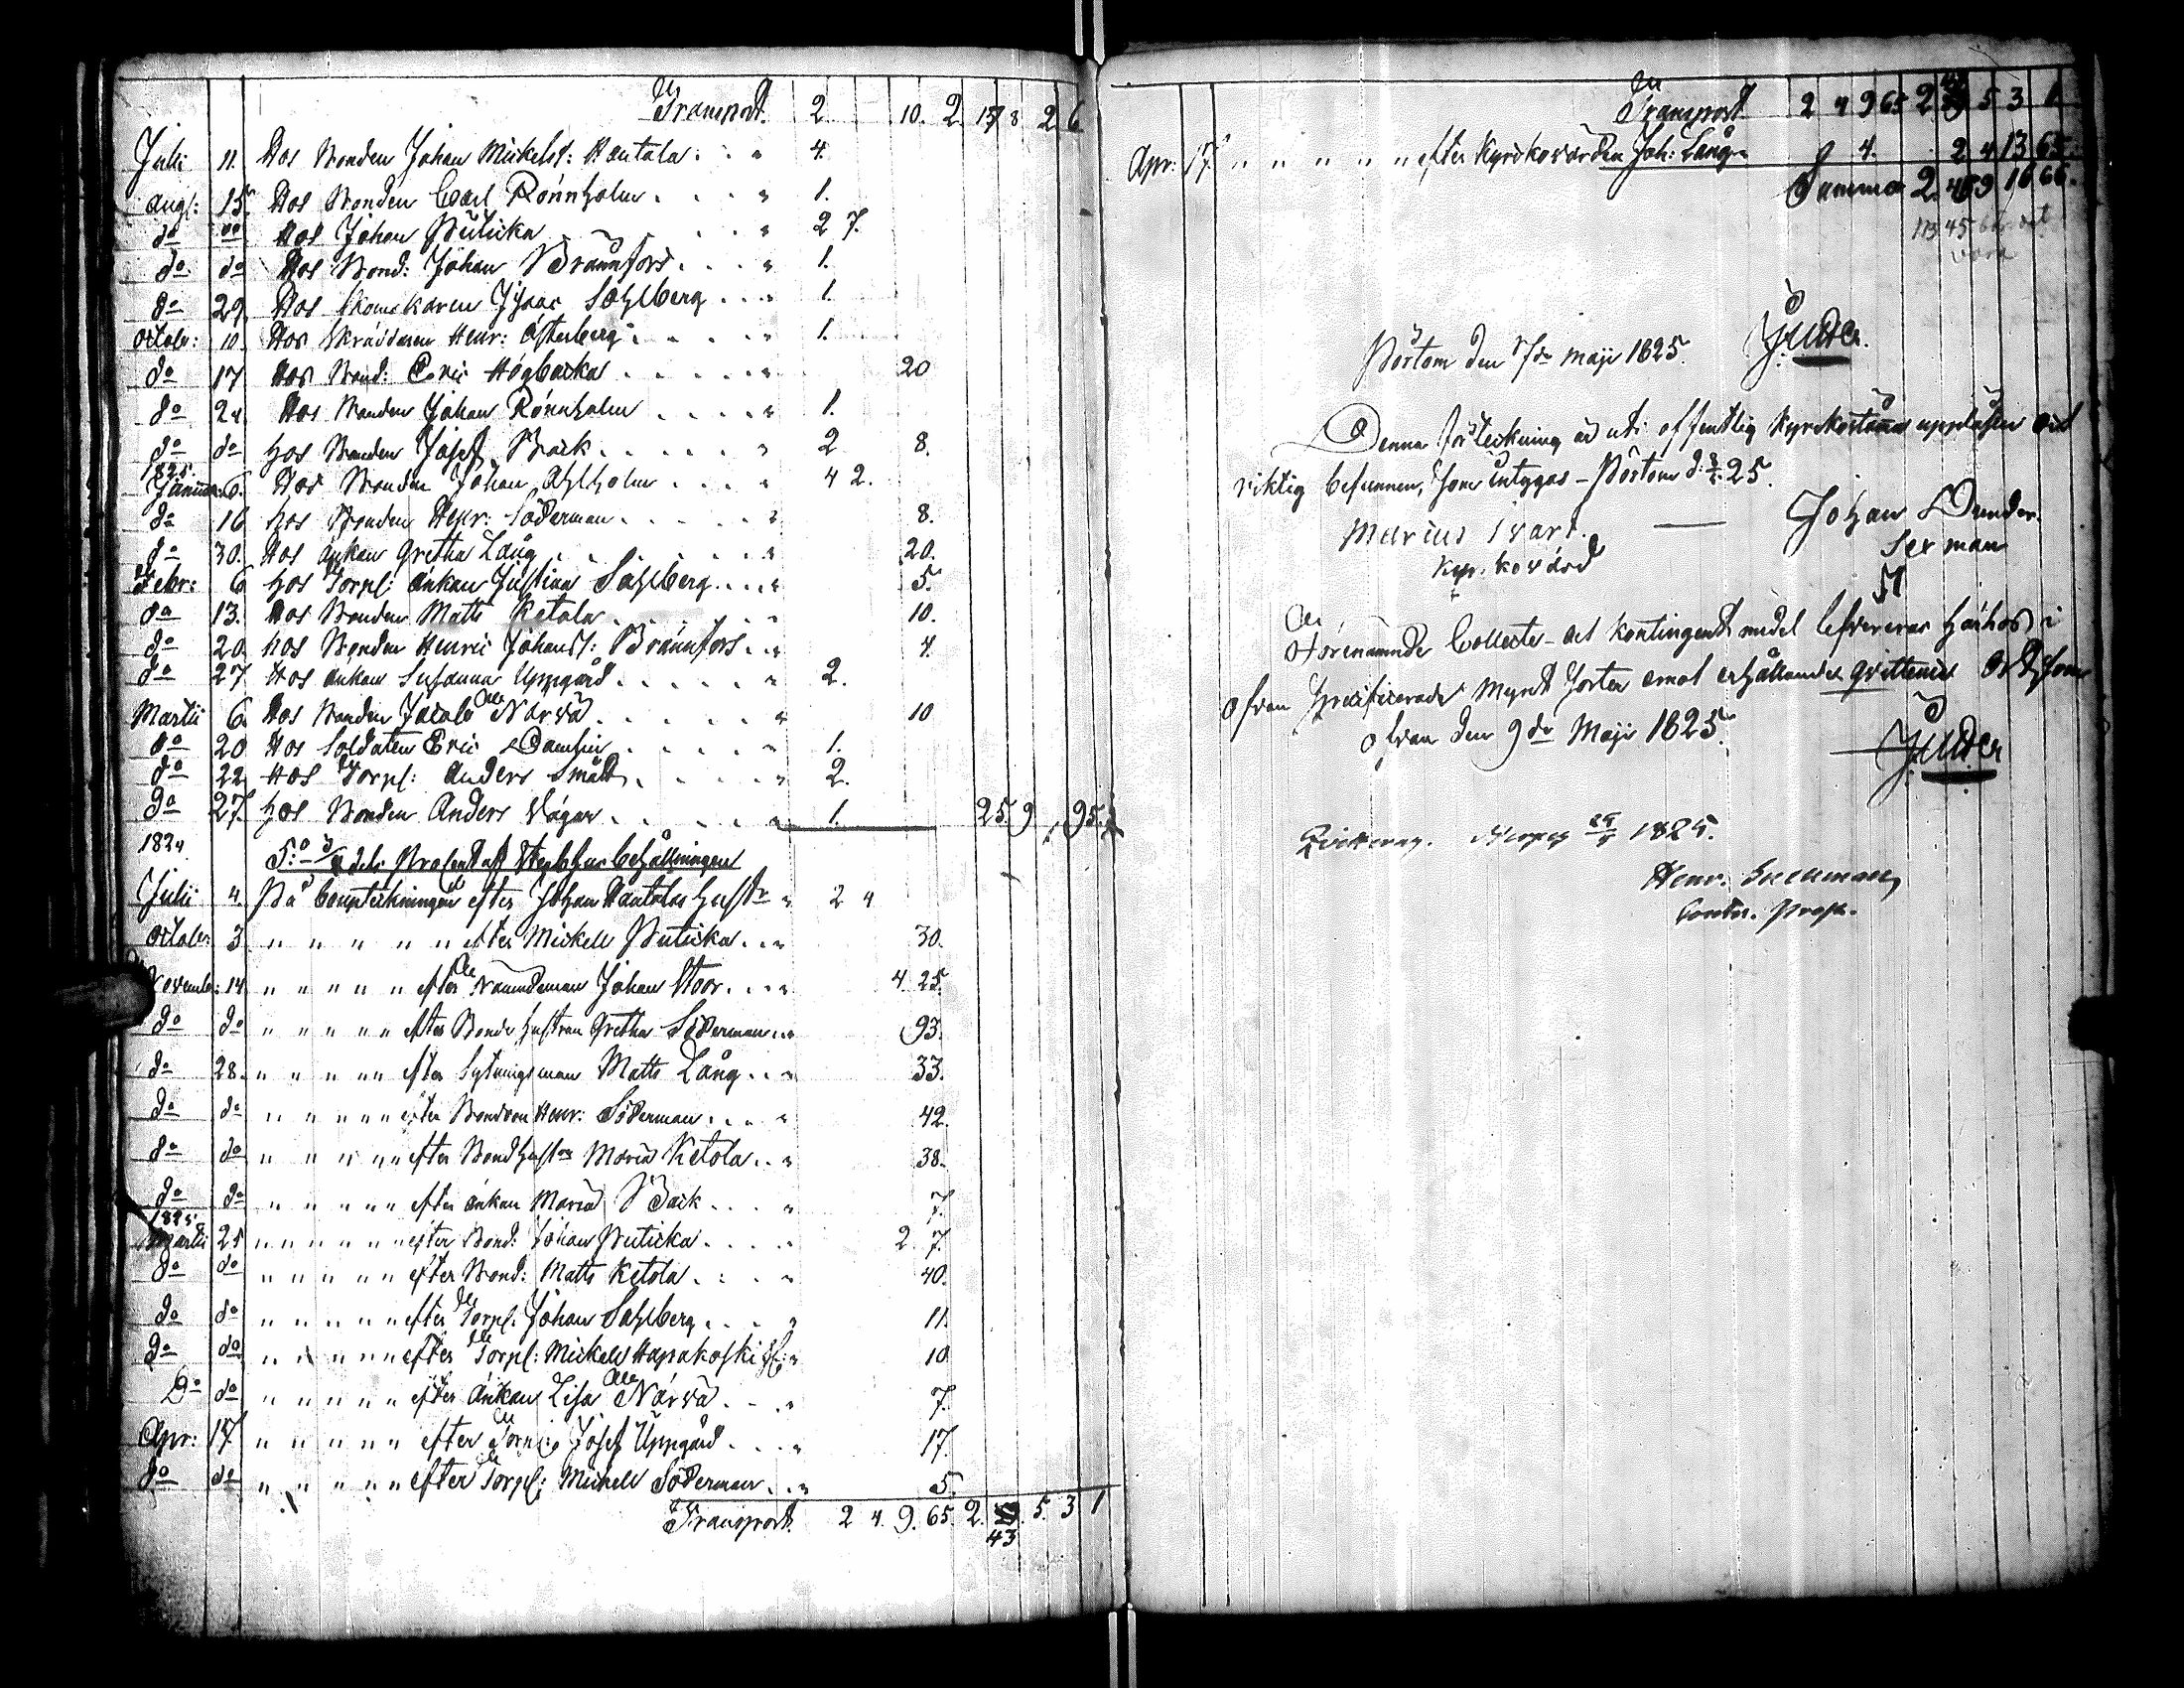 Transport. 2 10. 2. 137 8 2 6
Julii 11. Hos Bonden Johan Mickelss: Hantala. 4.
Augs: 15. Hos Bonden Carl Rönnholm. 1.
do do Hos Johan Buticka 2 7.
do do Hos Bond: Johan Brännfors. 1.
do 29. Hos Skomakaren Isaac Sahlberg. 1.
Octobr: 10. Hos Skräddaren Henr: Österberg. 1.
do 17 Hos Bond: Eric Högbacka 20
do 24 Hos Bonden Johan Rönnholm 1.
do do Hos Bonden Josef Back 2 8.
1825.
Januar: 6. Hos Bonden Johan Ahlholm 4 2.
do 16 Hos Bonden Henr: Söderman. 8.
do 30. Hos Änkan Gretha Lång 20.
Febr: 6 Hos Torpl: Änkan Justina Sahlberg. 5.
do 13. Hos Bonden Matts Ketola. 10.
do 20. Hos Bonden Henric Johanss: Brännfors. 4.
do 27 Hos Änkan Susanna Uppgård. 2.
Martii 6. Hos Bonden Jacob Närvä. 10
do 20. Hos Soldaten Eric Damlin 1.
do 22 Hos Torpl: Anders Smått 2.
do 27. Hos Bonden Anders Vägar. 1. 25. 9 95.
1824.
5:o dels Procent af Sterbhus behållningen
Julii 4. På Bouptekningen efter Johan Hantalas Hustr 2 4
Octobr 3. " " " " " efter Mickell Buticka. 30.
Novembr: 14 " " " " " efter Nämndeman Johan Stoor. 4. 25.
do do " " " " " efter Bonde Hustrun Gretha Söderman. 93.
do 28. " " " " " efter Sytningsman Matts Lång. 33.
do do " " " " " efter Bondson Henr: Söderman. 42.
do do " " " " " efter Bond Hustr Maria Ketola. 38.
do do " " " " " efter Änkan Maria Back 7.
1825.
Martii 25 " " " " " efter Bond: Johan Buticka. 2. 7.
do do " " " " " efter Bond: Matts Ketola. 40.
do do " " " " " efter Torpl: Johan Sahlberg. 11.
do do " " " " " efter Torpl: Mickell Hapakoski 10
Do do " " " " " efter Änkan Lisa Närvä. 7.
Apr: 17 " " " " " efter Torpl: Josef Uppgård. 17.
do do " " " " " efter Torpl: Mickell Söderman. 5
Transport. 2 4. 9. 65. 2. 43 5. 3 1
Transport. 2 4 9 65 2 5 3 1
Apr: 17. " " " " " efter Kyrkovärden Joh: Lång. 4. 2 4 13 65.
Summa 2. 459 16 66.
Pörtom den 7de Maji 1825. J. Juder.
Denna förteckning är uti offentlig Kyrkostämma uppläsen och
riktig befunnen, som intygas – Pörtom d: 8/5 25.
Marcus Ivars. Johan Dunder.
Kyrkovärd Sexman
Förenämnde Collecte- och Kontingent medel lefvereras härhos i
ofvan specificerade Mynt sorter emot erhållande Qvittence Pörtom
ofvan den 9de Maji 1825.
J. Juder
Qvitteras. 1825.
Henr.
Contr. Prost.